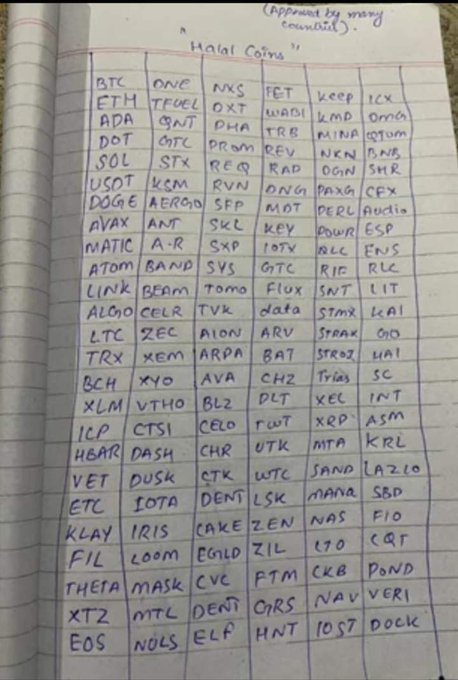 (Approved by many
countries).
" Halal Coins "
BTC ONE NXS FET Keep ICX
ETH TFUEL OXT WABI KMD OMG
ADA QNT PHA TRB MINA QTUM
DOT GTC PROM REV NKN BNB
SOL STX REQ RAD OGN SHR
USDT KSM RVN ONG PAXG CFX
DOGE AERGO SFP MDT PERL Audio
AVAX ANT SKL KEY POWR ESP
MATIC A-R SXP IOTX QLC ENS
ATOM BAND SYS GTC RIF RLC
LINK BEAM TOMO Flux SNT LIT
ALGO CELR TVK data STMX KAI
LTC ZEC AION ARV STRAX GO
TRX XEM ARPA BAT STROZ HAI
BCH XYO AVA CHZ Trias SC
XLM VTHO BLZ DLT XEC INT
ICP CTSI CELO TWT XRP ASM
HBAR DASH CHR UTK MTA KRL
VET DUSK CTK WTC SAND LAZIO
ETC IOTA DENT LSK MANA SBD
KLAY IRIS CAKE ZEN NAS FIO
FIL LOOM EGLD ZIL LTO CQT
THETA MASK CVC FTM CKB POND
XTZ MTL DENT GRS NAV VERI
EOS NOLS ELF HNT IOST DOCK